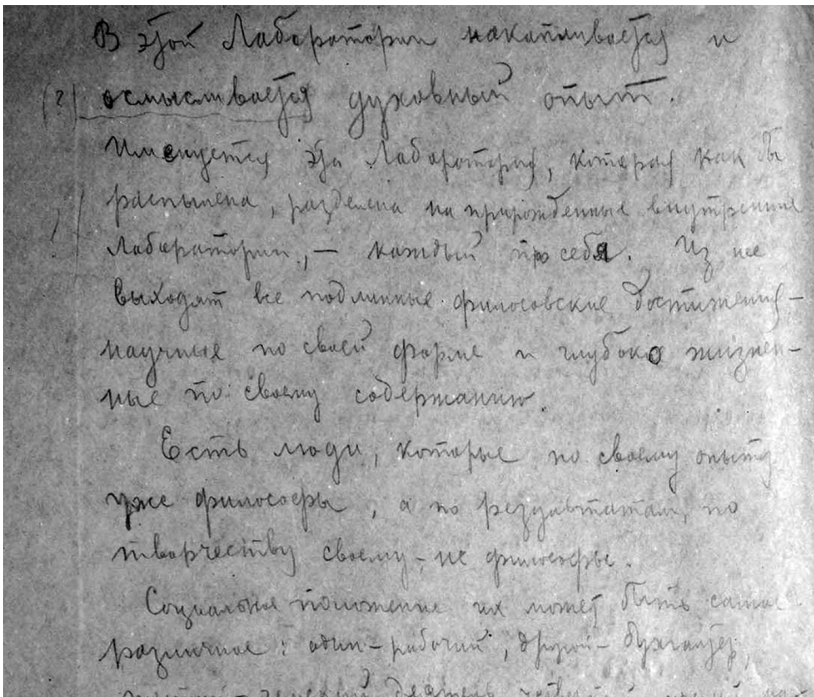 В этой Лаборатории накапливается и
(?) осмысливается духовный опыт.
Именуется эта Лаборатория, которая как бы
распылена, разделена на прирожденные внутренние
Лаборатории, – каждый про себя. Из нее
выходят все подлинные философские достижения –
научные по своей форме и глубоко жизнен-
ные по своему содержанию.
Есть люди, которые по своему опыту
уже философы, а по результатам, по
творчеству своему – не философы.
Социальное положение их может быть самое
различное: один – рабочий, другой – бухгалтер,